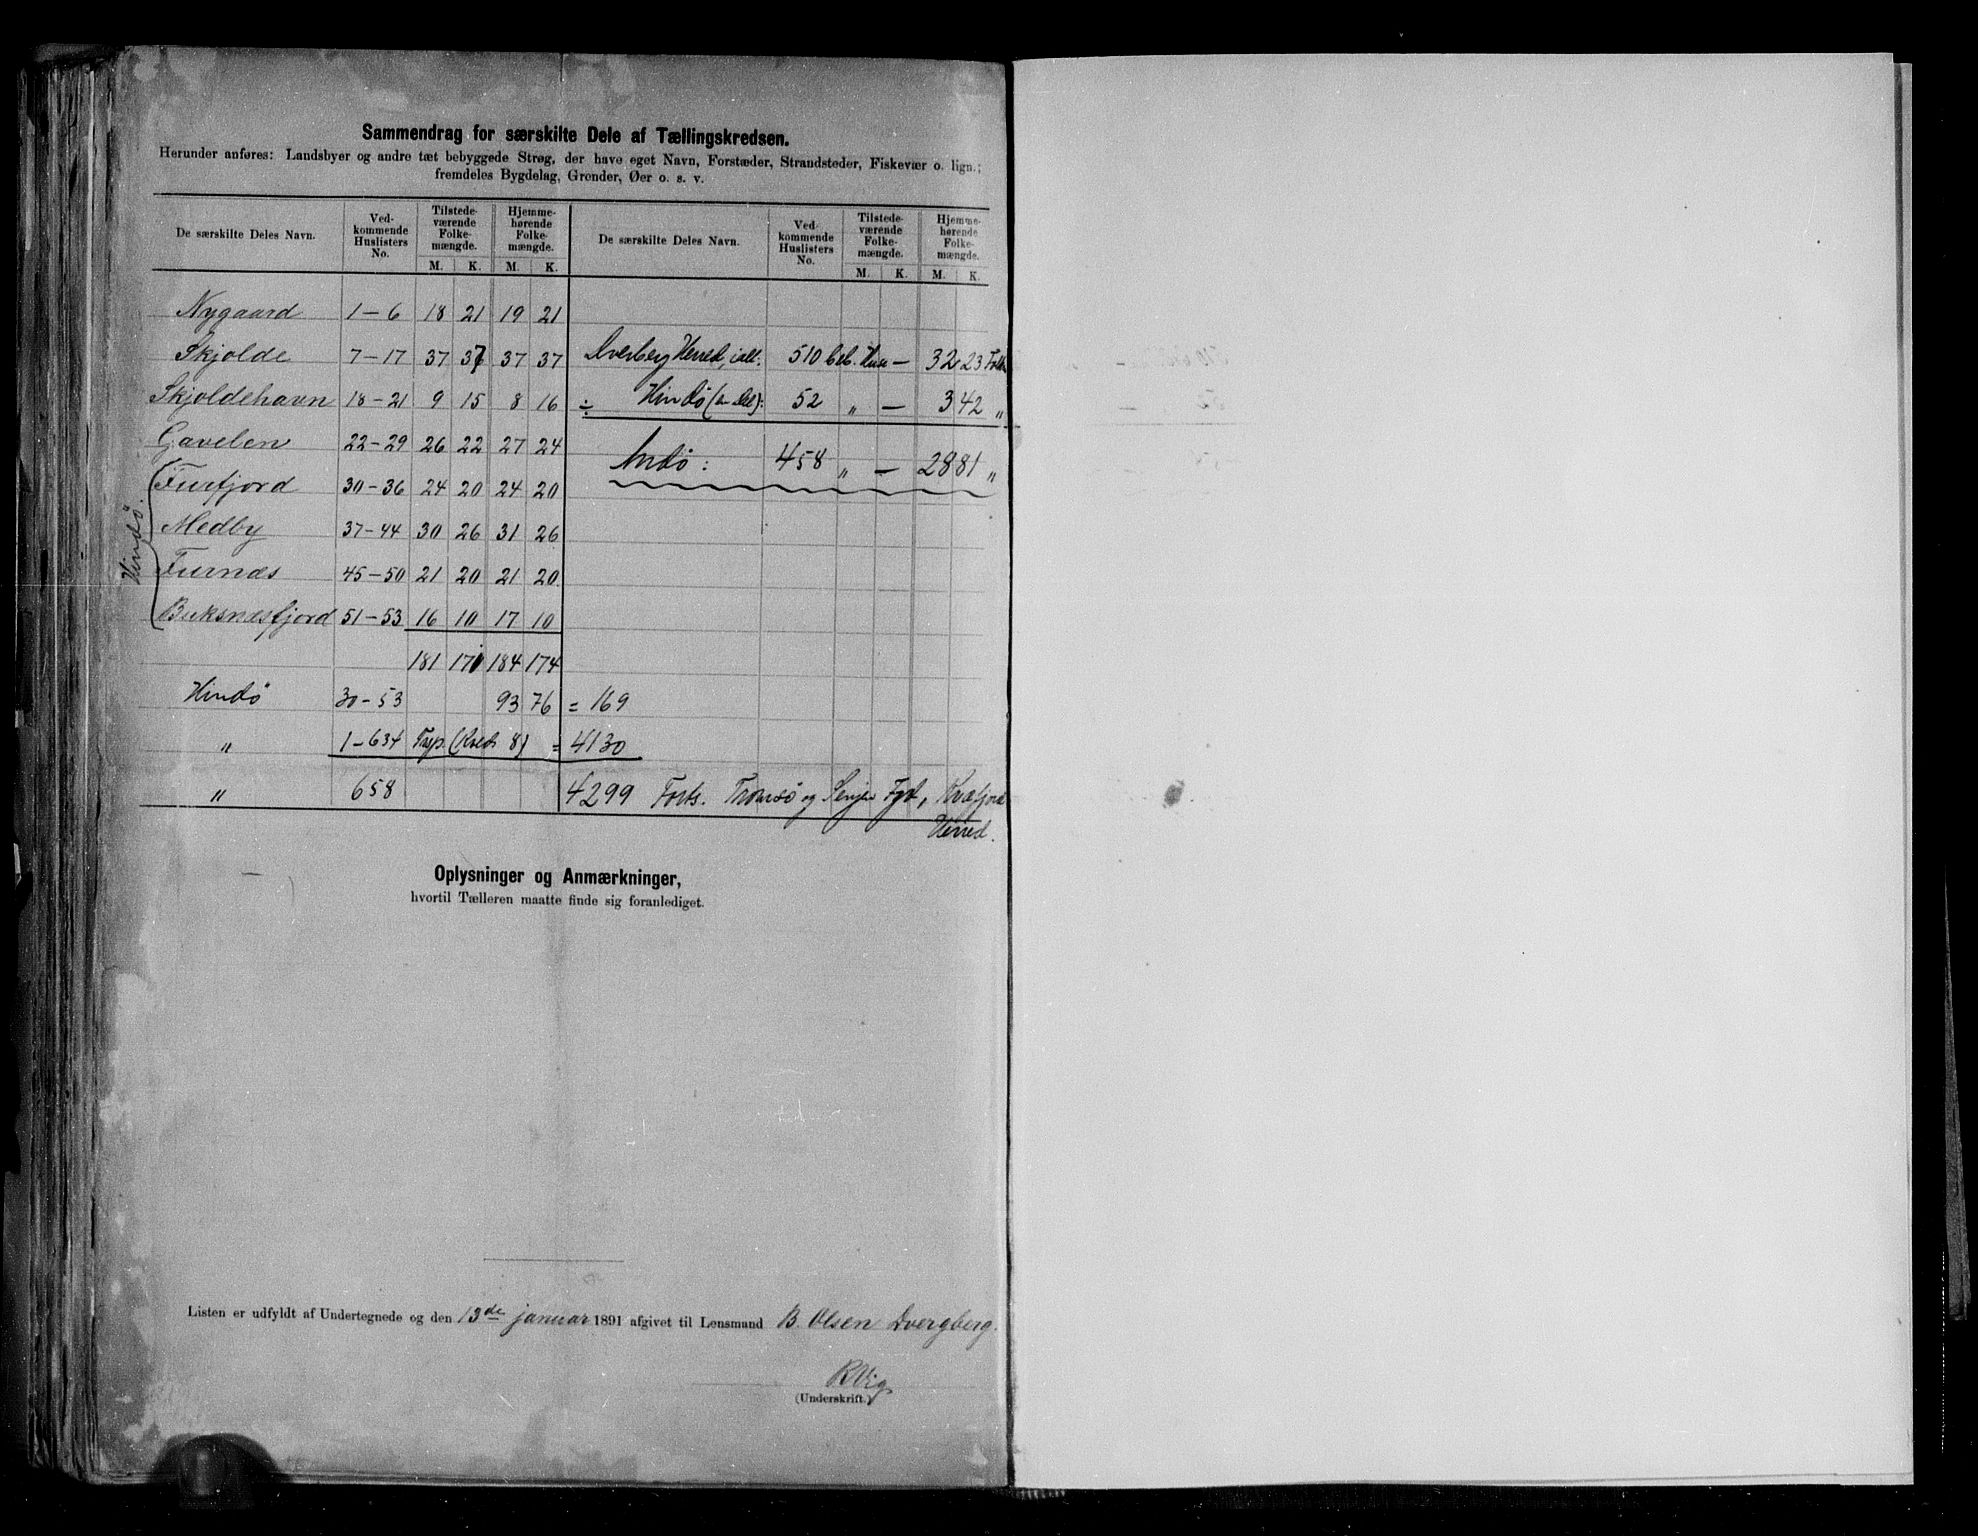 Sammendrag for særskilte Dele af Tællingskredsen.
Herunder anføres: Landsbyer og andre tæt bebyggede Strøg, der have eget Navn, Forstæder, Strandsteder, Fiskevær o. lign.;
fremdeles Bygdelag, Grender, Øer o. s. v.
De særskilte Deles Navn. Ved-kommende Huslisters No. Tilstede-værende Folke-mængde. M. K. Hjemme-hørende Folke-mængde. M. K. De særskilte Deles Navn. Ved-kommende Huslisters No. Tilstede-værende Folke-mængde. M. K. Hjemme-hørende Folke-mængde. M. K.
Nygaard 1-6 18 21 19 21
Skjolde 7-17 37 37 37 37 Dverberg Herred, ialt: 510 beb. Huse — 3223 Folk
Skjoldehavn 18-21 9 15 8 16 ÷ Hindø (en del): 52 " — 342 "
Gavelen 22-29 26 22 27 24 Andø: 458 " — 2881 "
Hindø.
Fiskfjord 30-36 24 20 24 20
Medby 37-44 30 26 31 26
Furnæs 45-50 21 20 21 20
Buksnæsfjord 51-53 16 10 17 10
181 171 184 174
Hindø 30-53 93 76 = 169
" 1-634 Trsp. (Kreds 8) = 4130
" 658 4299 Forts. Tromsø og Senjen Fgd, Kvæfjord
Herred.
Oplysninger og Anmærkninger,
hvortil Tælleren maatte finde sig foranlediget.
Listen er udfyldt af Undertegnede og den 13de januar 1891 afgivet til Lensmand B. Olsen Dvergberg.
R Vig
(Underskrift.)